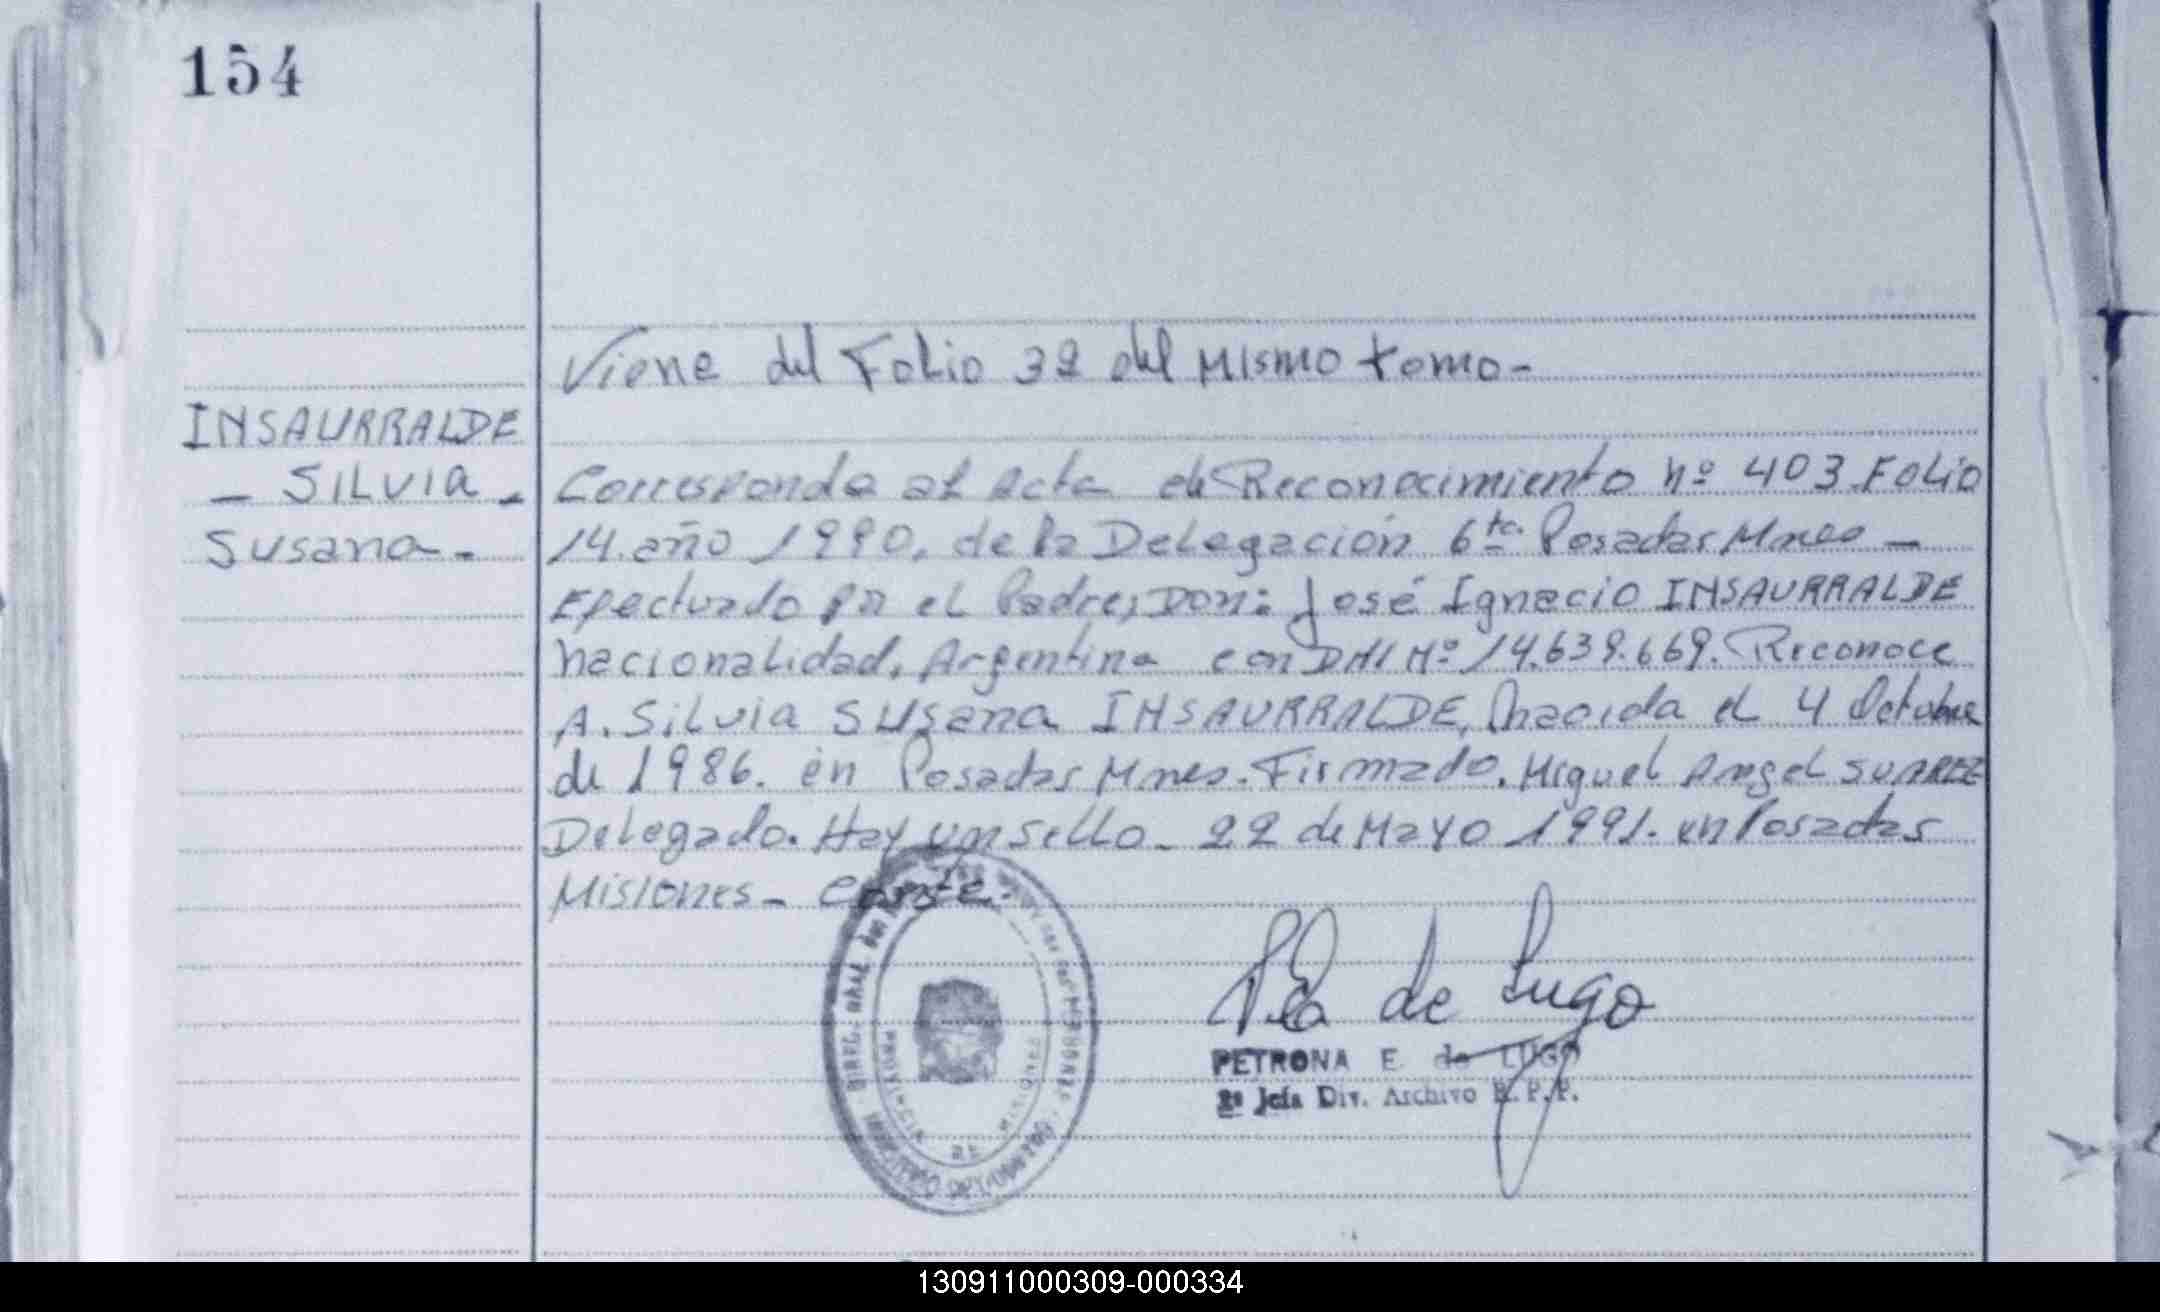 154
Viene del Folio 32 del mismo tomo-
INSAURRALDE
- SILVIA -
Susana-
Corresponde al Acta de Reconocimiento nº 403 Folio
14. año 1990, de la Delegación 6ta. Posadas Mnes-
Efectuado por el Padre, Don: José Ignacio INSAURRALDE
nacionalidad, Argentina con DNI Nº 14.639.669. Reconoce
A. Silvia Susana INSAURRALDE, nacida el 4 Octubre
de 1986. en Posadas Mnes. Firmado. Miguel Angel SUAREZ
Delegado. Hay un sello- 22 de Mayo 1991. en Posadas
Misiones-
P.E. de Lugo
PETRONA E. de LUGO
2ª Jefa Div. Archivo R.P.P.
PROVINCIA DE MISIONES
130911000309-000334